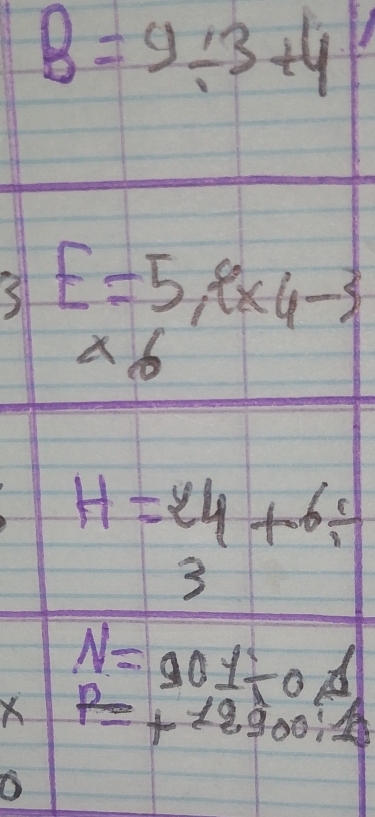 B = 9 ÷ 3 + 4
3 E = 5, × 4 - 3
× 6
H = 24 + 6 ÷
3
N = 901 ÷ 0,1
× P = + 12900 ÷
0